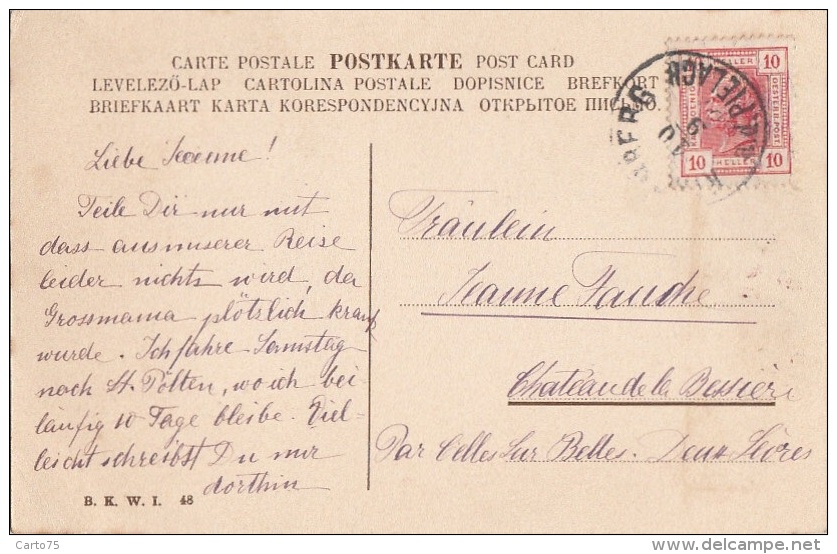 CARTE POSTALE POSTKARTE POST CARD
LEVELEZŐ-LAP CARTOLINA POSTALE DOPISNICE BREFKORT
BRIEFKAART KARTA KORESPONDENCYJNA ОТКРЫТОЕ ПИСЬМО.
10 HELLER 10
Liebe Jeanne!
Teile Dir nur mit
dass aus unserer Reise
leider nichts wird, da
Grossmama plötzlich krank
wurde. Ich fahre Samstag
nach St. Pölten, wo ich bei
läufig 10 Tage bleibe. Viel-
leicht schreibst Du mir
dorthin
Fräulein
Jeanne Fauche
Chateau de la Bessière
Par Celles sur Belles. Deux Sèvres
B. K. W. I. 48
Carto75
www.delcampe.net